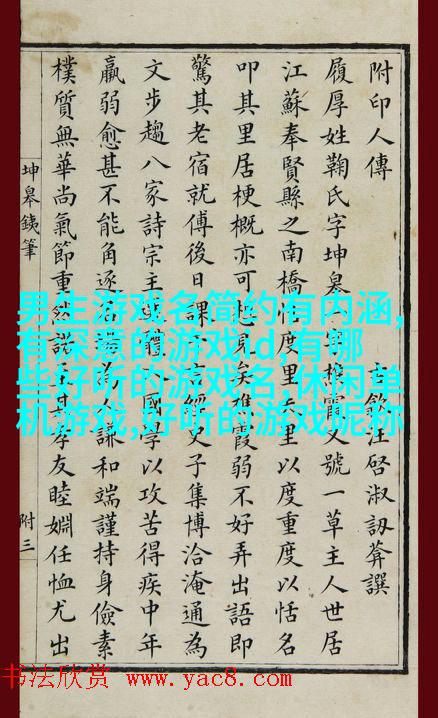 附印人傳
歙汪啓淑訒葊譔
履厚姓鞠氏字坤皋字樵霞又號一草主人世居
江蘇奉賢縣之南橋恬度里云里以度重度以恬名
叩其里居梗概亦可想見矣樵霞弱不好弄出語即
驚其老宿就傅後日課言經史子集博洽淹通為
文步趨八家詩宗主體國學以攻苦得疾中年
羸弱愈甚不能角逐名為人謙和端謹持身儉素
樸質無華尚氣節重然諾至其孝友睦婣任恤尤出
坤皋鐵筆
附三
男生游戏名简约有内涵,
有深意的游戏id,有哪
些好听的游戏名,休闲单
机游戏,好听的游戏昵称
书法欣赏 www.yac8.com